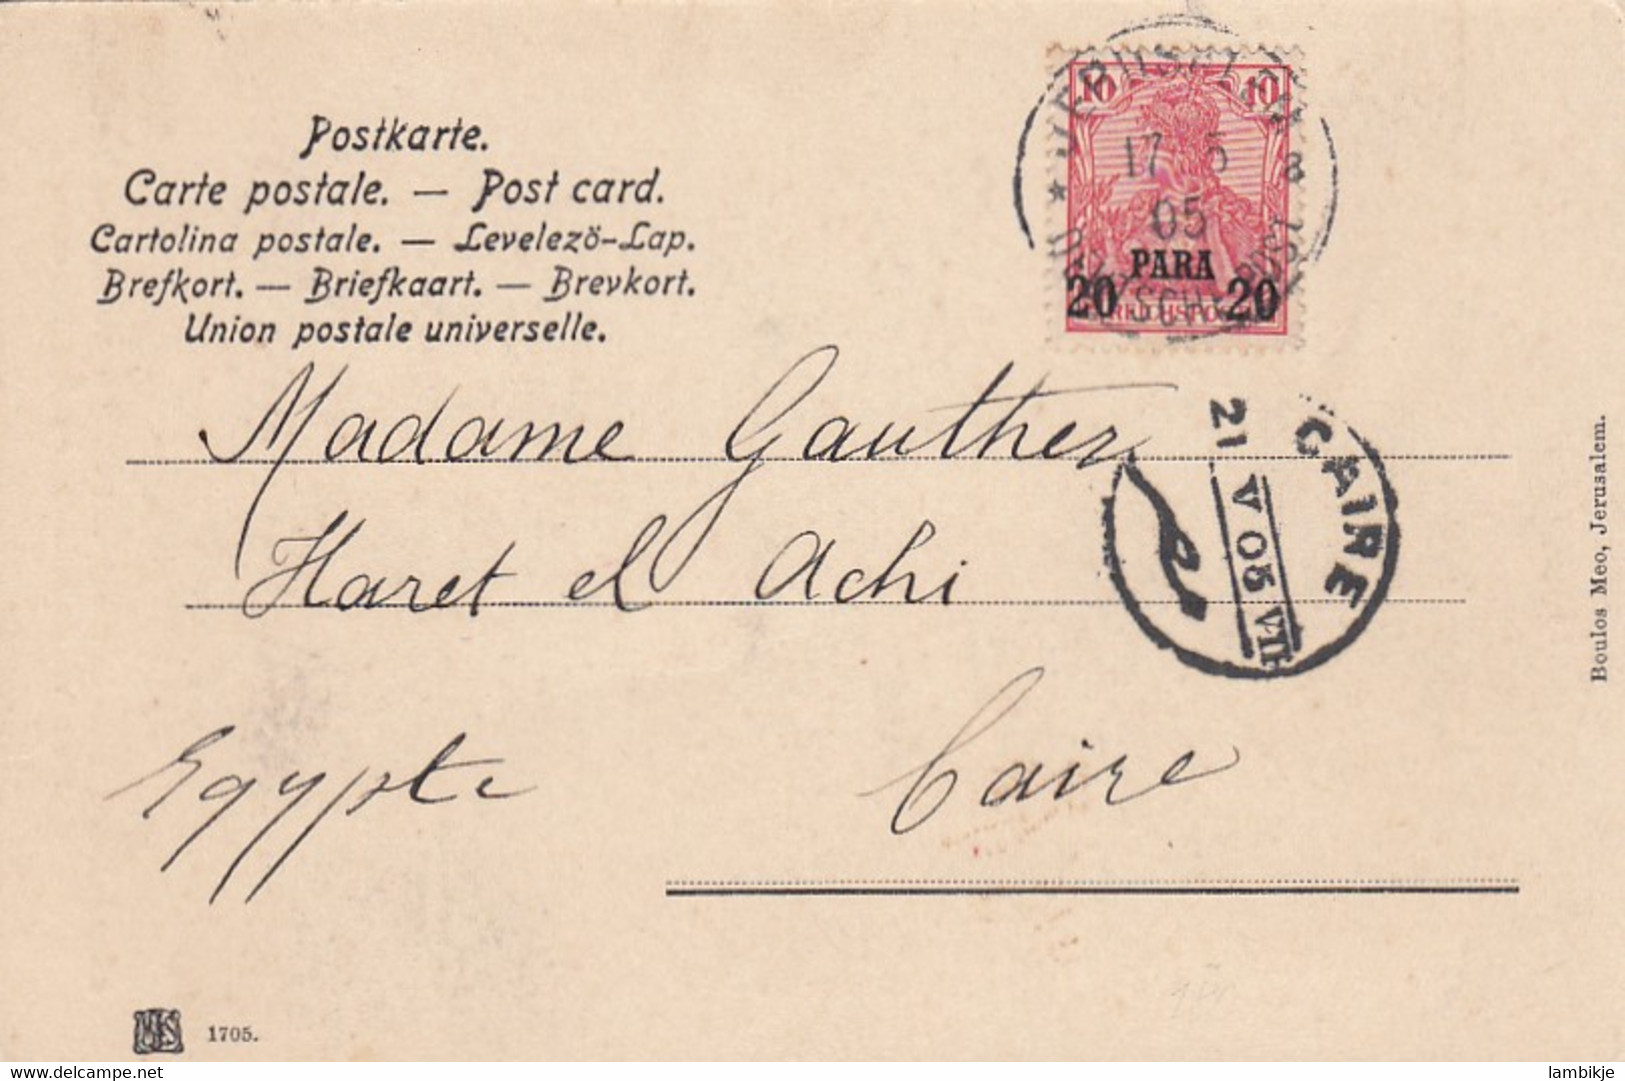 Postkarte.
Carte postale. — Post card.
Cartolina postale. — Levelezö-Lap.
Brefkort. — Briefkaart. — Brevkort.
Union postale universelle.
JERUSALEM
10 10
17 5
8
05
PARA
20 20
REICHSPOST
DEUTSCHE POST
Madame Gauthier
Haret el Achi
Caire
Egypte
CAIRE
21 V 05 VII
Boulos Meo, Jerusalem.
1705.
delcampe.net
lambikje